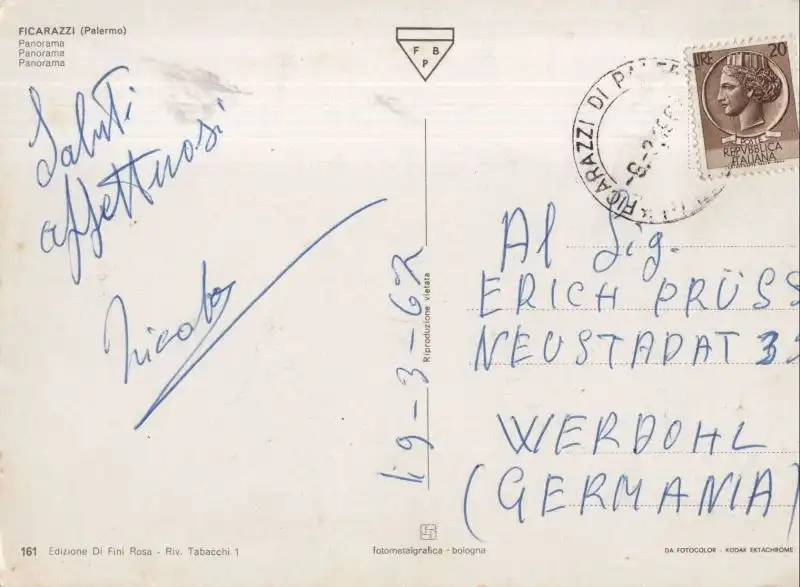 FICARAZZI (Palermo)
Panorama
Panorama
Panorama
Saluti
affettuosi
Nicolò
F B
P
19-3-67
Riproduzione vietata
FICARAZZI DI PALERMO
LIRE 20
POSTE
REPVBBLICA
ITALIANA
Al Sig.
ERICH PRÜSS
NEUSTADAT 35
WERDOHL
(GERMANIA)
161 Edizione Di Fini Rosa - Riv. Tabacchi 1
fotometalgrafica - bologna
DA FOTOCOLOR - KODAK EKTACHROME